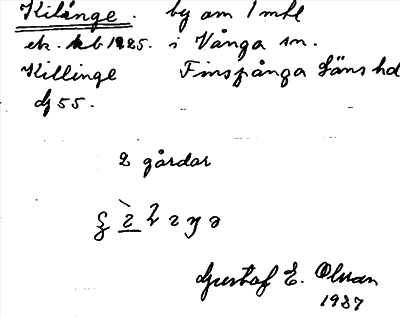 Kilånge. by om 1 mtl
ek. kb 1825. i Vånga sn.
Killinge Finspånga Läns hd
dj 55.
2 gårdar
Gustaf E. Olsson
1937